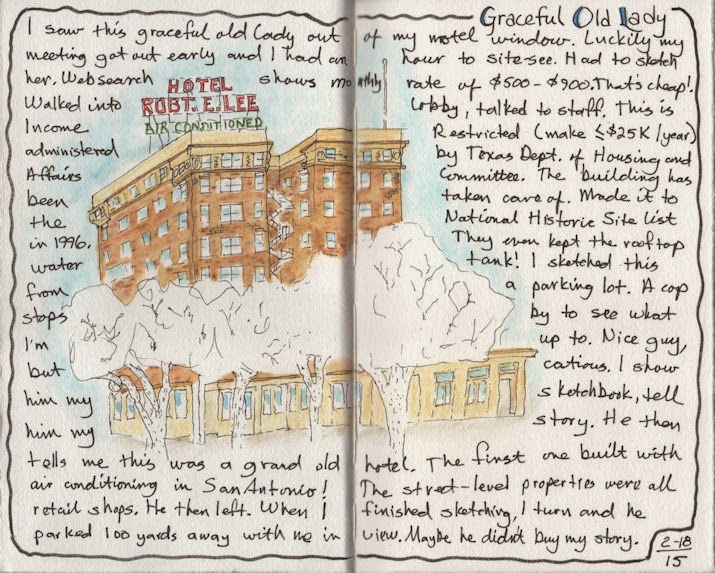 Graceful Old Lady
I saw this graceful old lady out of my motel window. Luckily my
meeting got out early and I had an hour to site-see. Had to sketch
her. Websearch shows monthly rate of $500 - $900. That's cheap!
HOTEL
ROBT. E. LEE
AIR CONDITIONED
Walked into lobby, talked to staff. This is
Income Restricted (make ≤$25K/year)
administered by Texas Dept. of Housing and
Affairs Committee. The building has
been taken care of. Made it to
the National Historic Site list
in 1996. They even kept the rooftop
water tank! I sketched this
from a parking lot. A cop
stops by to see what
I'm up to. Nice guy,
but catious. I show
him my sketchbook, tell
him my story. He then
tells me this was a grand old hotel. The first one built with
air conditioning in San Antonio! The street-level properties were all
retail shops. He then left. When I finished sketching, I turn and he
parked 100 yards away with me in view. Maybe he didn't buy my story.
2-18
15